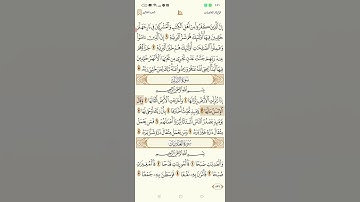 إِنَّ ٱلَّذِينَ كَفَرُوا۟ مِنْ أَهْلِ ٱلْكِتَـٰبِ وَٱلْمُشْرِكِينَ فِى نَارِ جَهَنَّمَ
خَـٰلِدِينَ فِيهَآ أُو۟لَـٰٓئِكَ هُمْ شَرُّ ٱلْبَرِيَّةِ ٦ إِنَّ ٱلَّذِينَ ءَامَنُوا۟
وَعَمِلُوا۟ ٱلصَّـٰلِحَـٰتِ أُو۟لَـٰٓئِكَ هُمْ خَيْرُ ٱلْبَرِيَّةِ ٧ جَزَآؤُهُمْ
سُورَةُ الزَّلْزَلَةِ
بِسْمِ ٱللَّهِ ٱلرَّحْمَـٰنِ ٱلرَّحِيمِ
إِذَا زُلْزِلَتِ ٱلْأَرْضُ زِلْزَالَهَا ١ وَأَخْرَجَتِ ٱلْأَرْضُ أَثْقَالَهَا ٢ وَقَالَ
ٱلْإِنسَـٰنُ مَا لَهَا ٣ يَوْمَئِذٍ تُحَدِّثُ أَخْبَارَهَا ٤ بِأَنَّ رَبَّكَ أَوْحَىٰ لَهَا ٥
يَوْمَئِذٍ يَصْدُرُ ٱلنَّاسُ أَشْتَاتًا لِّيُرَوْا۟ أَعْمَـٰلَهُمْ ٦ فَمَن يَعْمَلْ
مِثْقَالَ ذَرَّةٍ خَيْرًا يَرَهُۥ ٧ وَمَن يَعْمَلْ مِثْقَالَ ذَرَّةٍ شَرًّا يَرَهُۥ ٨
سُورَةُ العَادِيَاتِ
بِسْمِ ٱللَّهِ ٱلرَّحْمَـٰنِ ٱلرَّحِيمِ
وَٱلْعَـٰدِيَـٰتِ ضَبْحًا ١ فَٱلْمُورِيَـٰتِ قَدْحًا ٢ فَٱلْمُغِيرَٰتِ
صُبْحًا ٣ فَأَثَرْنَ بِهِۦ نَقْعًا ٤ فَوَسَطْنَ بِهِۦ جَمْعًا ٥